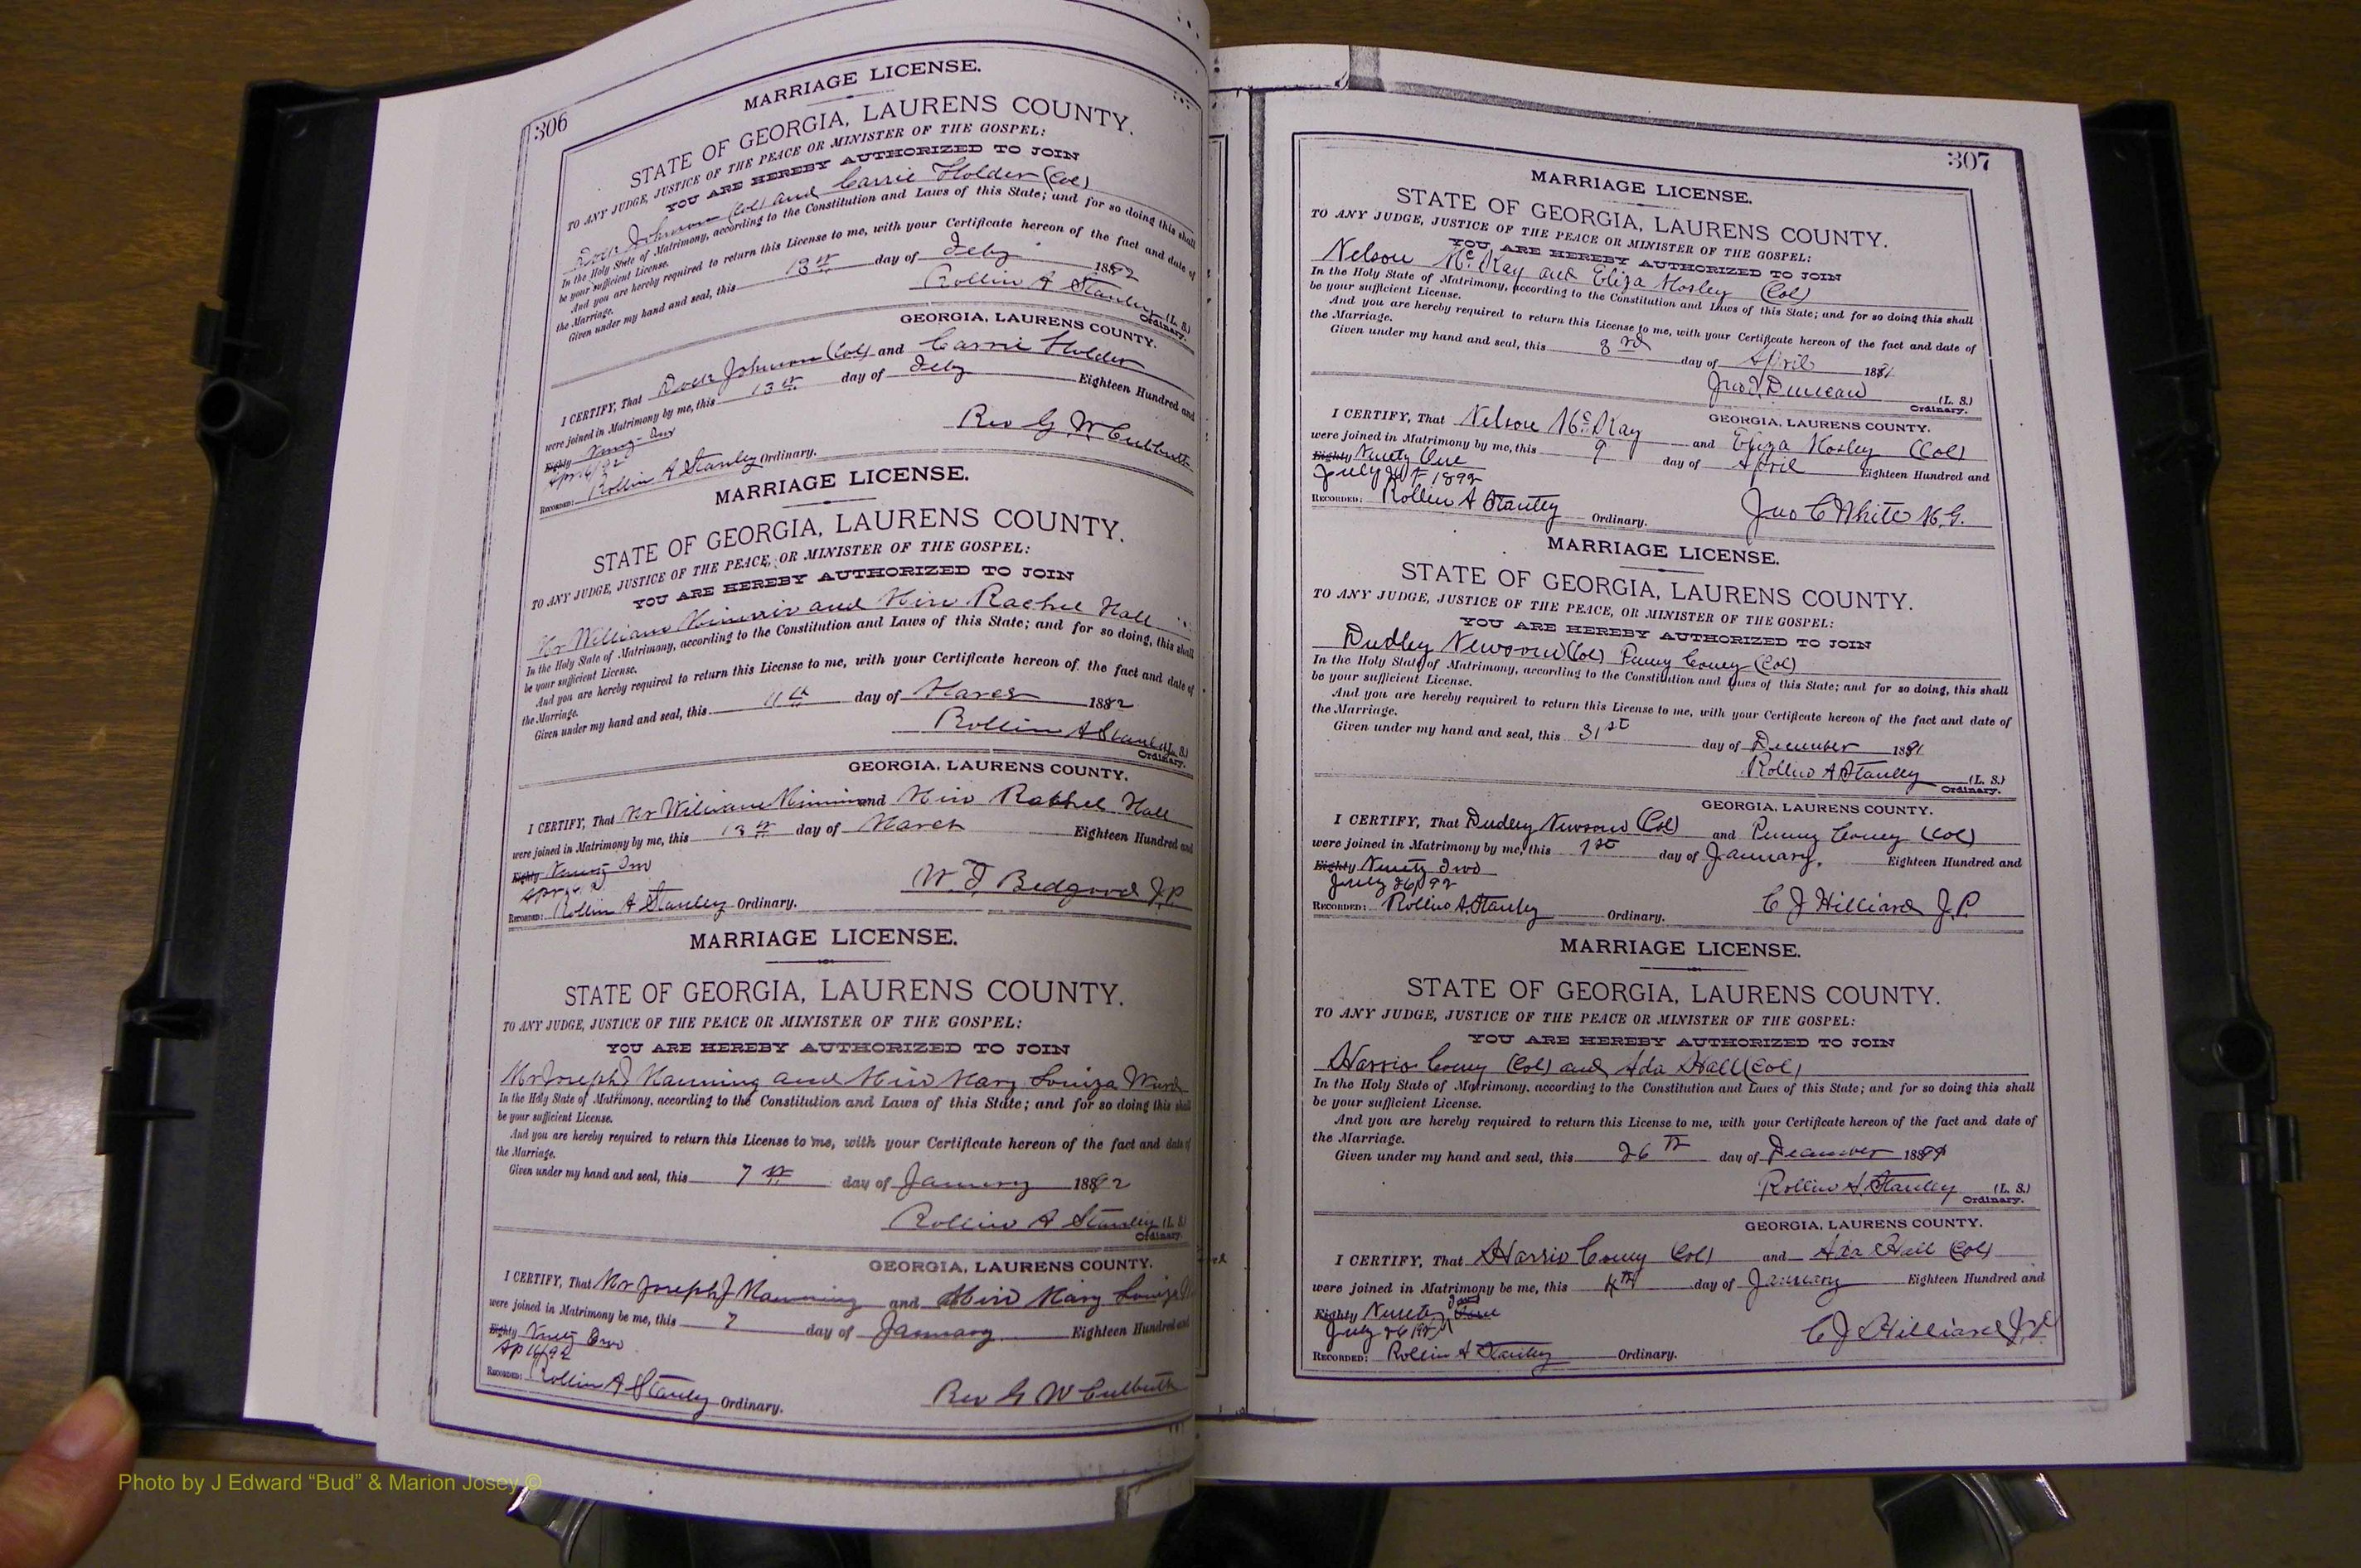 306
MARRIAGE LICENSE.
STATE OF GEORGIA, LAURENS COUNTY.
TO ANY JUDGE, JUSTICE OF THE PEACE OR MINISTER OF THE GOSPEL:
YOU ARE HEREBY AUTHORIZED TO JOIN
Dock Johnson (Col) and Carrie Holder (Col)
In the Holy State of Matrimony, according to the Constitution and Laws of this State; and for so doing this shall
be your sufficient License.
And you are hereby required to return this License to me, with your Certificate hereon of the fact and date of
the Marriage.
Given under my hand and seal, this 13th day of Feby 1892
Rollin A Stanley (L. S.)
Ordinary.
GEORGIA, LAURENS COUNTY.
I CERTIFY, That Dock Johnson (Col) and Carrie Holder
were joined in Matrimony by me, this 13th day of Feby Eighteen Hundred and
Eighty
Rev G W Culbreth
Recorded: Rollin A Stanley Ordinary.
MARRIAGE LICENSE.
STATE OF GEORGIA, LAURENS COUNTY.
TO ANY JUDGE, JUSTICE OF THE PEACE, OR MINISTER OF THE GOSPEL:
YOU ARE HEREBY AUTHORIZED TO JOIN
Mr William and Miss Rachel Hall
In the Holy State of Matrimony, according to the Constitution and Laws of this State; and for so doing, this shall
be your sufficient License.
And you are hereby required to return this License to me, with your Certificate hereon of the fact and date of
the Marriage.
Given under my hand and seal, this 11th day of March 1892
Rollin A Stanley (L. S.)
Ordinary.
GEORGIA, LAURENS COUNTY.
I CERTIFY, That Mr William and Miss Rachel Hall
were joined in Matrimony by me, this 13th day of March Eighteen Hundred and
Eighty Ninety Two
W. T. Bedgood J.P
Recorded: Rollin A Stanley Ordinary.
MARRIAGE LICENSE.
STATE OF GEORGIA, LAURENS COUNTY.
TO ANY JUDGE, JUSTICE OF THE PEACE OR MINISTER OF THE GOSPEL:
YOU ARE HEREBY AUTHORIZED TO JOIN
Mr Joseph J Manning and Miss Mary Louiza
In the Holy State of Matrimony, according to the Constitution and Laws of this State; and for so doing this shall
be your sufficient License.
And you are hereby required to return this License to me, with your Certificate hereon of the fact and date of
the Marriage.
Given under my hand and seal, this 7th day of January 1892
Rollin A Stanley (L. S.)
Ordinary.
GEORGIA, LAURENS COUNTY.
I CERTIFY, That Mr Joseph J Manning and Miss Mary Louiza
were joined in Matrimony be me, this 7 day of January Eighteen Hundred and
Eighty Ninety Two
Ap 16/92
Rev G W Culbreth
Recorded: Rollin A Stanley Ordinary.
307
MARRIAGE LICENSE.
STATE OF GEORGIA, LAURENS COUNTY.
TO ANY JUDGE, JUSTICE OF THE PEACE OR MINISTER OF THE GOSPEL:
YOU ARE HEREBY AUTHORIZED TO JOIN
Nelson McKay and Eliza Mosley (Col)
In the Holy State of Matrimony, according to the Constitution and Laws of this State; and for so doing this shall
be your sufficient License.
And you are hereby required to return this License to me, with your Certificate hereon of the fact and date of
the Marriage.
Given under my hand and seal, this 3rd day of April 1891
Jno T. Duncan (L. S.)
Ordinary.
GEORGIA, LAURENS COUNTY.
I CERTIFY, That Nelson McKay and Eliza Mosley (Col)
were joined in Matrimony by me, this 9 day of April Eighteen Hundred and
Eighty Ninety One
July 1892
Jno C White M.G.
Recorded: Rollin A Stanley Ordinary.
MARRIAGE LICENSE.
STATE OF GEORGIA, LAURENS COUNTY.
TO ANY JUDGE, JUSTICE OF THE PEACE, OR MINISTER OF THE GOSPEL:
YOU ARE HEREBY AUTHORIZED TO JOIN
Dudley Newsom (Col) Penny Coney (Col)
In the Holy State of Matrimony, according to the Constitution and Laws of this State; and for so doing, this shall
be your sufficient License.
And you are hereby required to return this License to me, with your Certificate hereon of the fact and date of
the Marriage.
Given under my hand and seal, this 31st day of December 1891
Rollin A Stanley (L. S.)
Ordinary.
GEORGIA, LAURENS COUNTY.
I CERTIFY, That Dudley Newsom (Col) and Penny Coney (Col)
were joined in Matrimony by me, this 1st day of January. Eighteen Hundred and
Eighty Ninety Two
July 26/92
C J Hilliard J.P.
Recorded: Rollin A. Stanley Ordinary.
MARRIAGE LICENSE.
STATE OF GEORGIA, LAURENS COUNTY.
TO ANY JUDGE, JUSTICE OF THE PEACE OR MINISTER OF THE GOSPEL:
YOU ARE HEREBY AUTHORIZED TO JOIN
Harris Coney (Col) and Ada Hall (Col)
In the Holy State of Matrimony, according to the Constitution and Laws of this State; and for so doing this shall
be your sufficient License.
And you are hereby required to return this License to me, with your Certificate hereon of the fact and date of
the Marriage.
Given under my hand and seal, this 26th day of December
Rollin A. Stanley (L. S.)
Ordinary.
GEORGIA, LAURENS COUNTY.
I CERTIFY, That Harris Coney (Col) and Ada Hall (Col)
were joined in Matrimony be me, this 4th day of January Eighteen Hundred and
Eighty Ninety
July 26/92
C J Hilliard J.P.
Recorded: Rollin A Stanley Ordinary.
Photo by J Edward “Bud” & Marion Josey ©